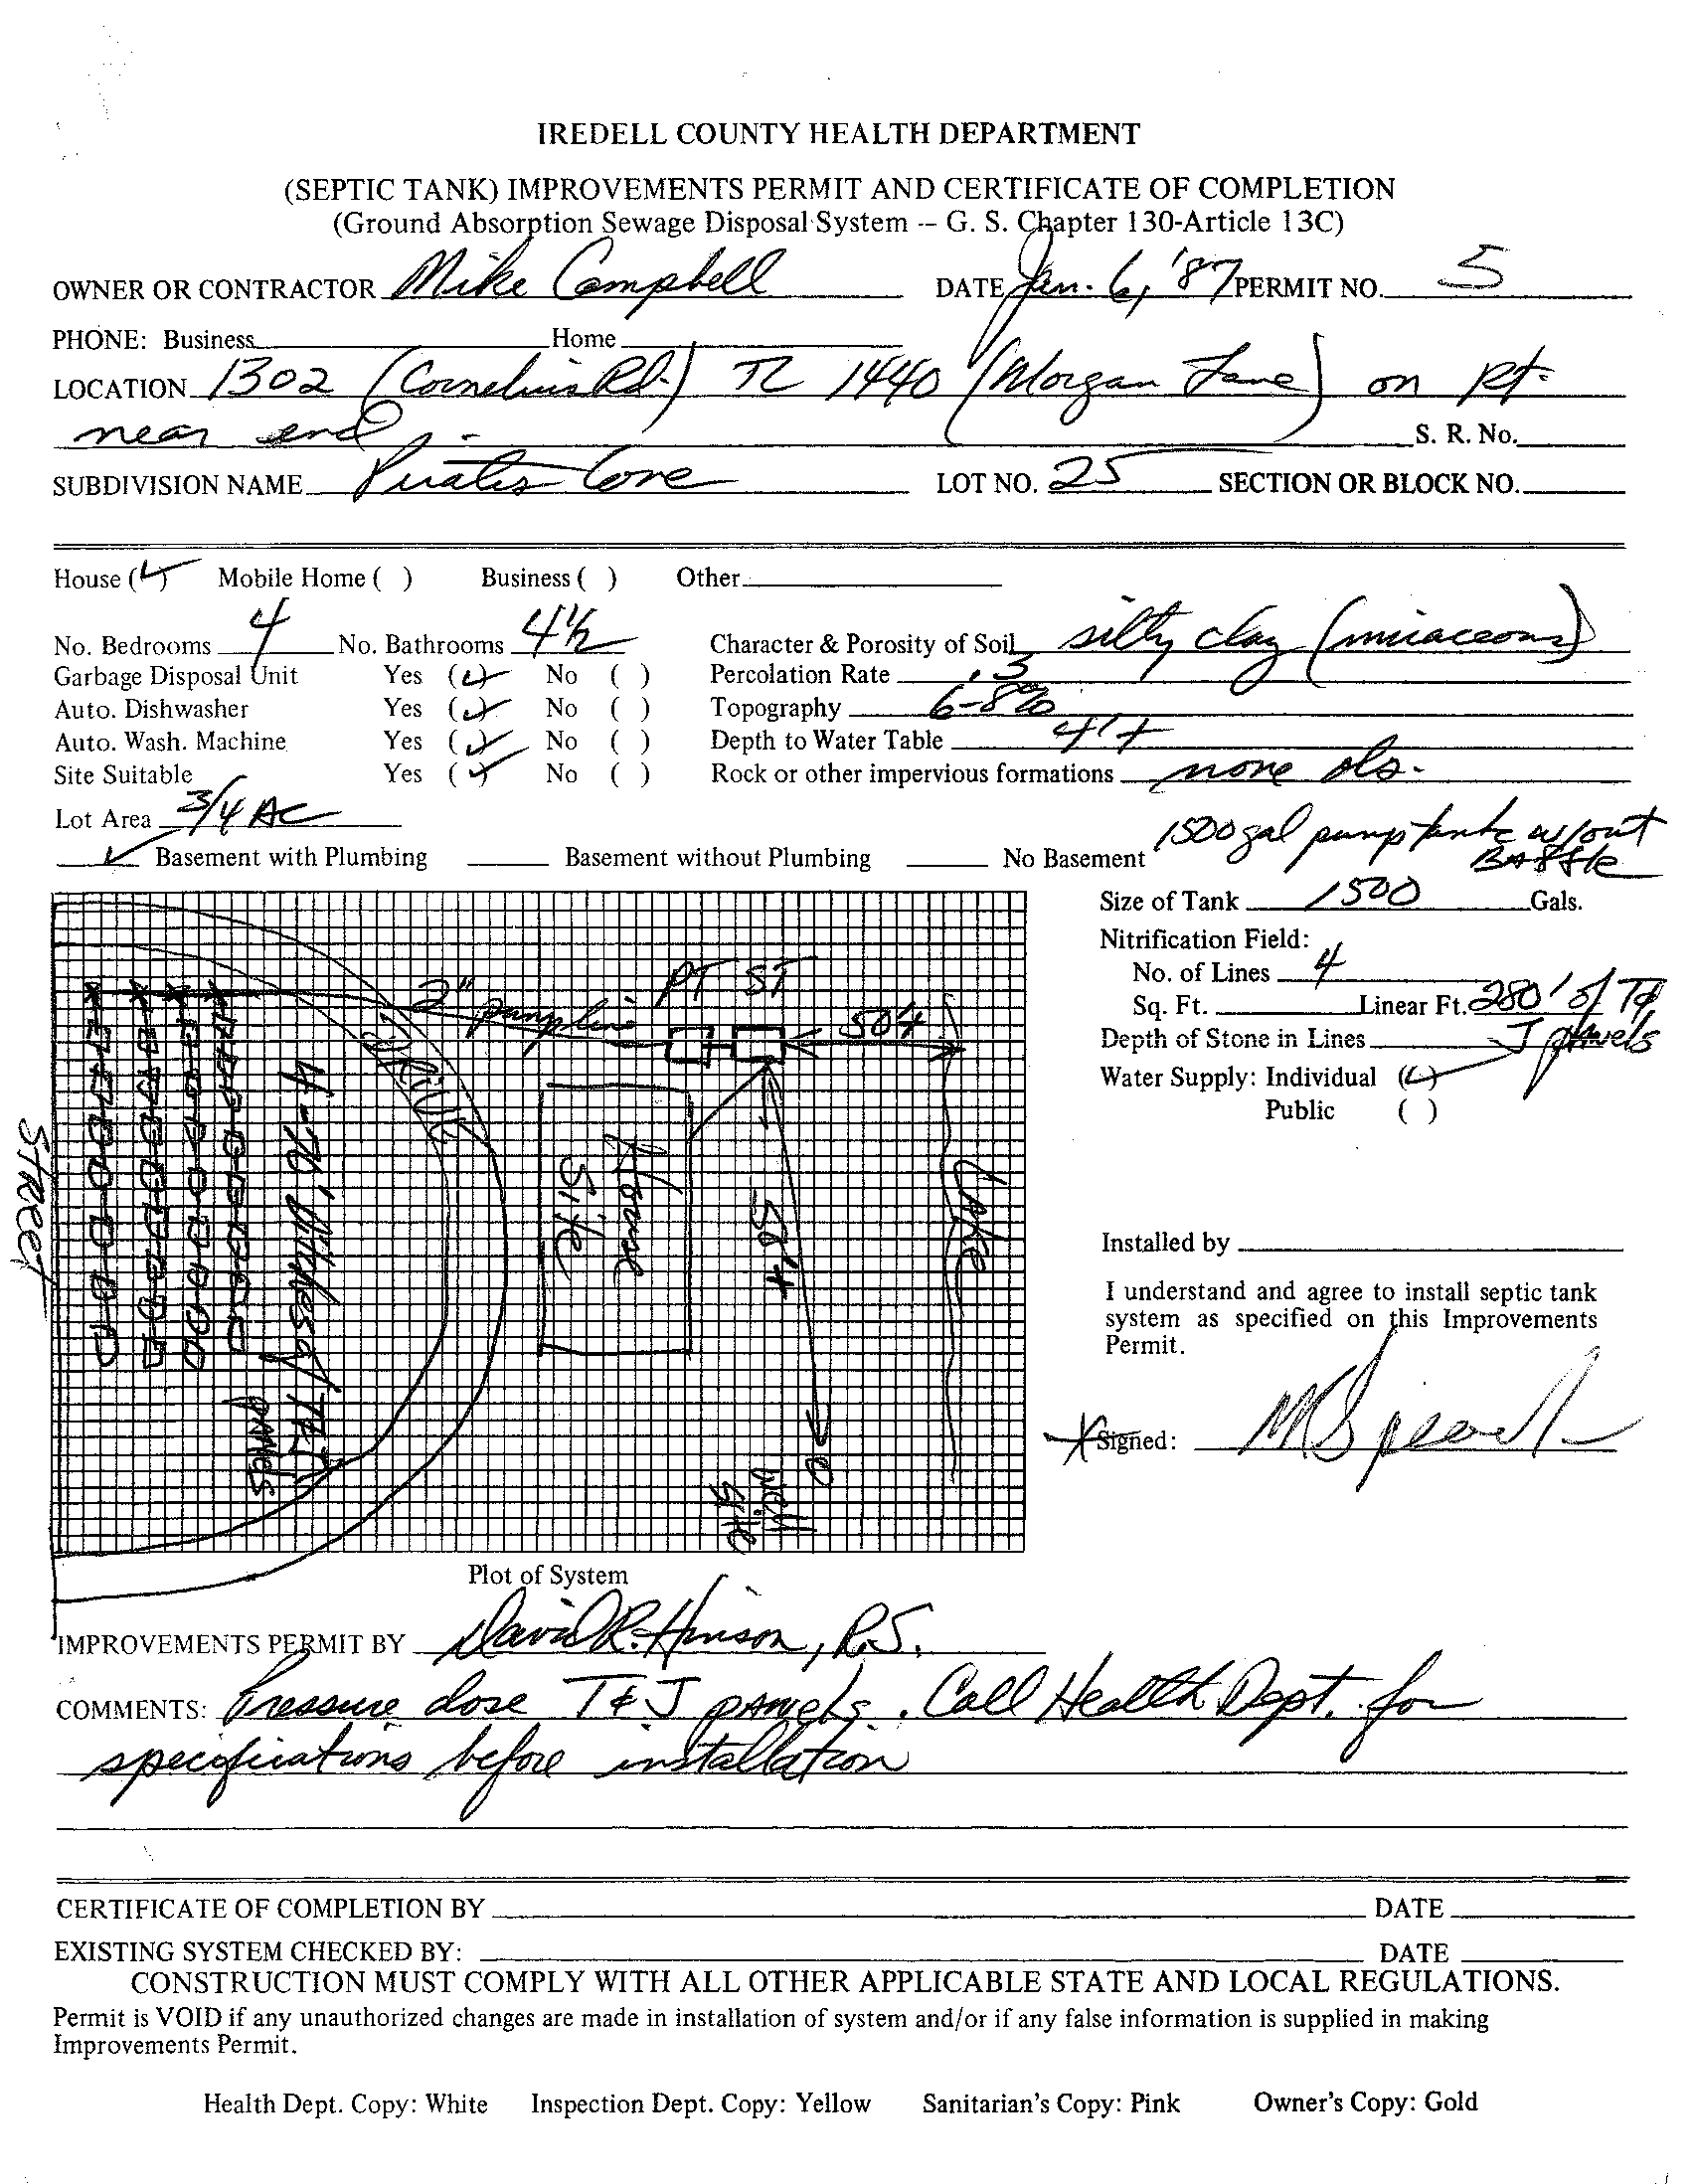 IREDELL COUNTY HEALTH DEPARTMENT
(SEPTIC TANK) IMPROVEMENTS PERMIT AND CERTIFICATE OF COMPLETION
(Ground Absorption Sewage Disposal System -- G. S. Chapter 130-Article 13C)
OWNER OR CONTRACTOR Mike Campbell DATE Jan. 6, '87 PERMIT NO. 5
PHONE: Business Home
LOCATION 1302 (Cornelius Rd.) TL 1440 (Morgan Lane) on rt.
near end S. R. No.
SUBDIVISION NAME Pirates Cove LOT NO. 25 SECTION OR BLOCK NO.
House (✓) Mobile Home ( ) Business ( ) Other
No. Bedrooms 4 No. Bathrooms 4½ Character & Porosity of Soil silty clay (micaceous)
Garbage Disposal Unit Yes (✓) No ( ) Percolation Rate .3
Auto. Dishwasher Yes (✓) No ( ) Topography 6-8%
Auto. Wash. Machine Yes (✓) No ( ) Depth to Water Table 4'+
Site Suitable Yes (✓) No ( ) Rock or other impervious formations none obs.
Lot Area 3/4 AC
1500 gal pump tank w/out
BAffle
✓ Basement with Plumbing Basement without Plumbing No Basement
Size of Tank 1500 Gals.
Nitrification Field:
No. of Lines 4
Sq. Ft. Linear Ft. 280' of T&
J panels
Depth of Stone in Lines
Water Supply: Individual (✓)
Public ( )
2" pump line
PT ST
50'+
Drive
4-70' ditches of T&J
panels
Street
House
Site
50'+
Lake
Well
Site
Installed by
I understand and agree to install septic tank
system as specified on this Improvements
Permit.
Signed:
Plot of System
IMPROVEMENTS PERMIT BY David R. Hinson, R.S.
COMMENTS: Pressure dose T & J panels. Call Health Dept. for
specifications before installation
CERTIFICATE OF COMPLETION BY DATE
EXISTING SYSTEM CHECKED BY: DATE
CONSTRUCTION MUST COMPLY WITH ALL OTHER APPLICABLE STATE AND LOCAL REGULATIONS.
Permit is VOID if any unauthorized changes are made in installation of system and/or if any false information is supplied in making
Improvements Permit.
Health Dept. Copy: White Inspection Dept. Copy: Yellow Sanitarian's Copy: Pink Owner's Copy: Gold